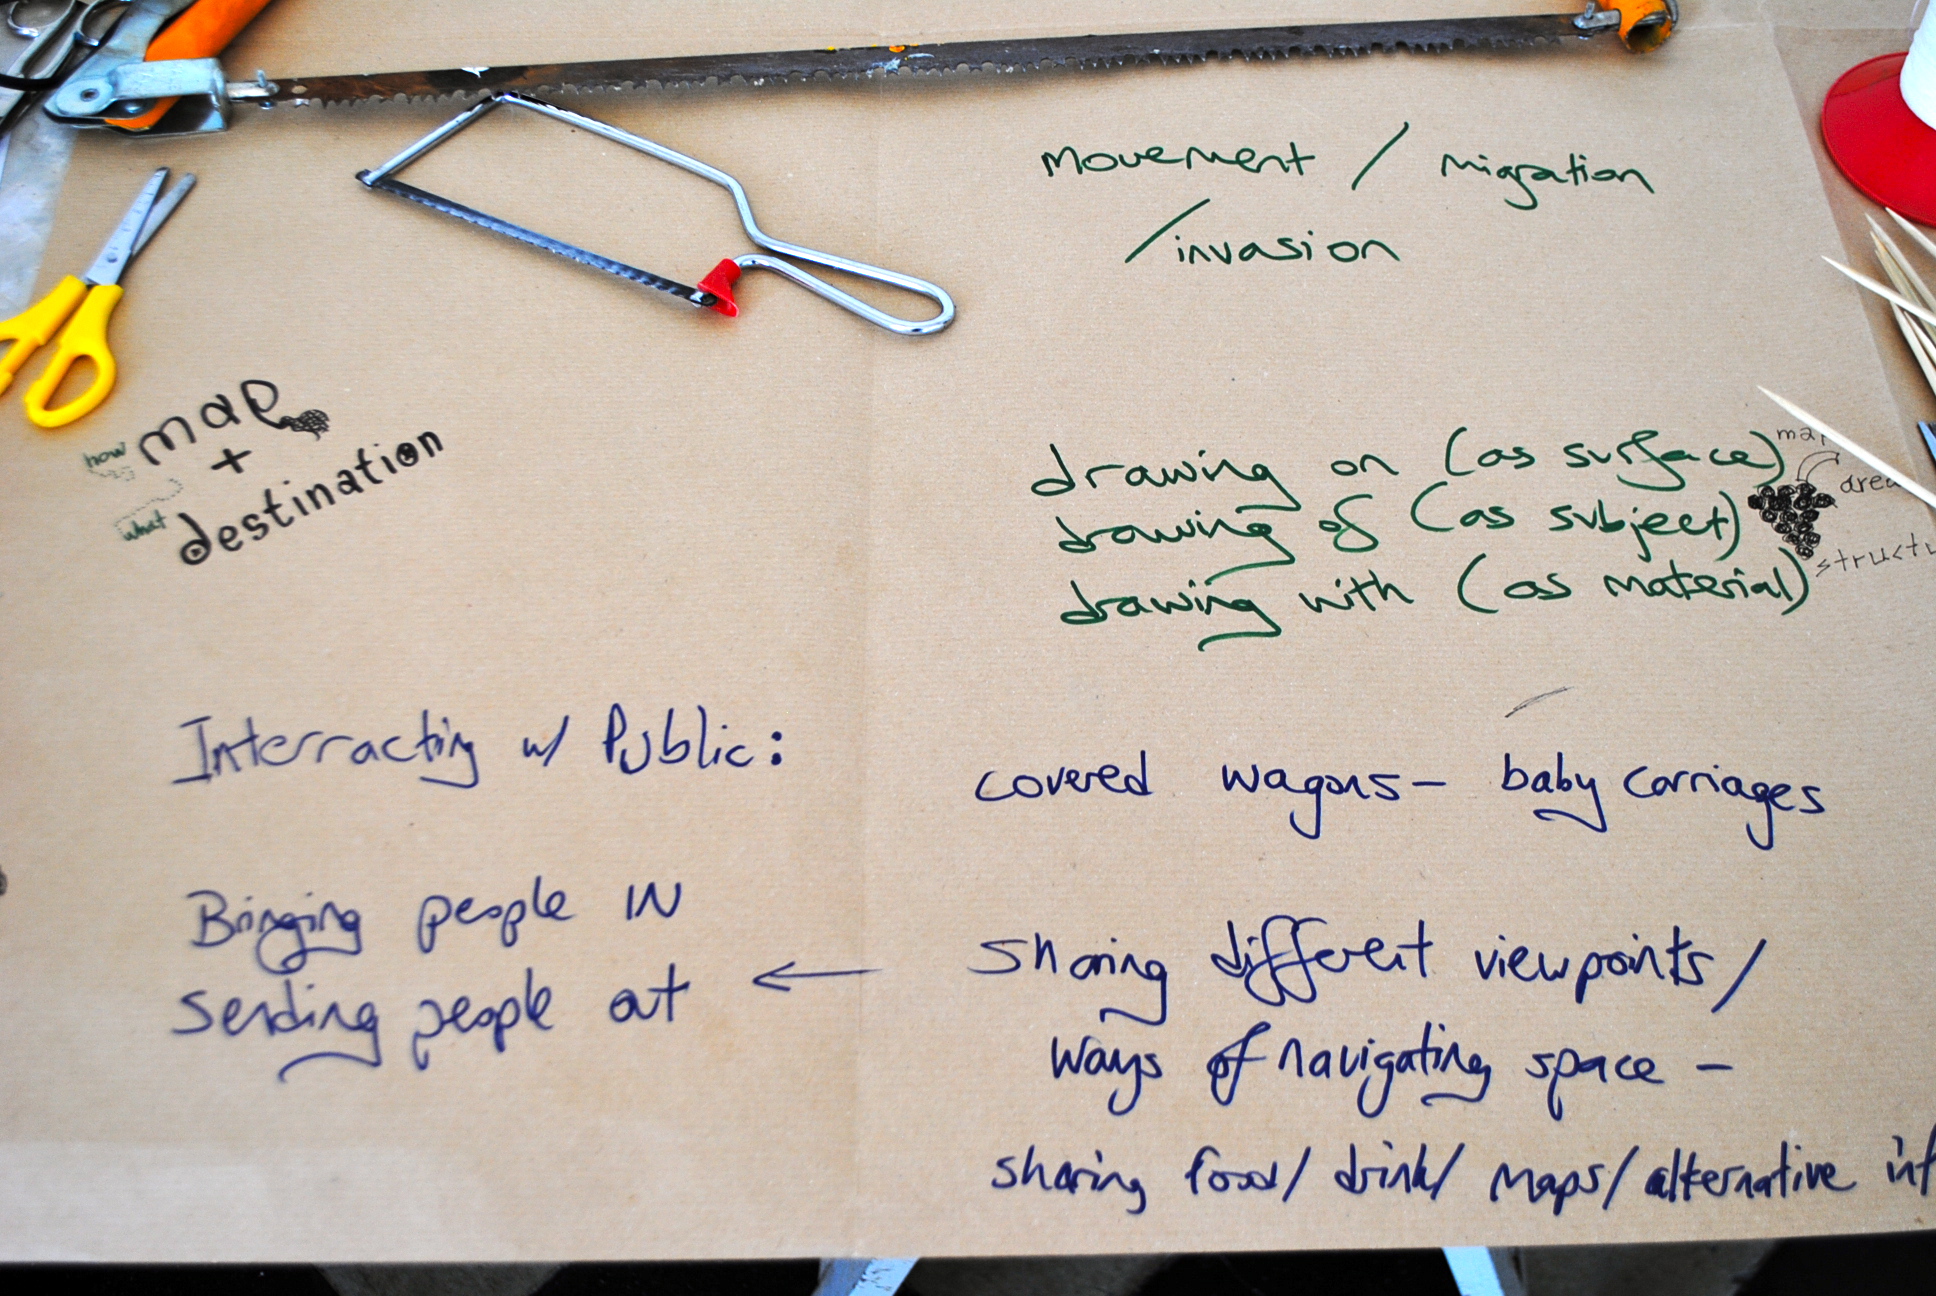 movement / migration
/ invasion
how map
+
what destination
drawing on (as surface)
drawing of (as subject)
drawing with (as material)
Interracting w/ Public:
covered wagons – baby carriages
Bringing people IN
sending people out
sharing different viewpoints /
ways of navigating space –
sharing food / drink / maps / alternative